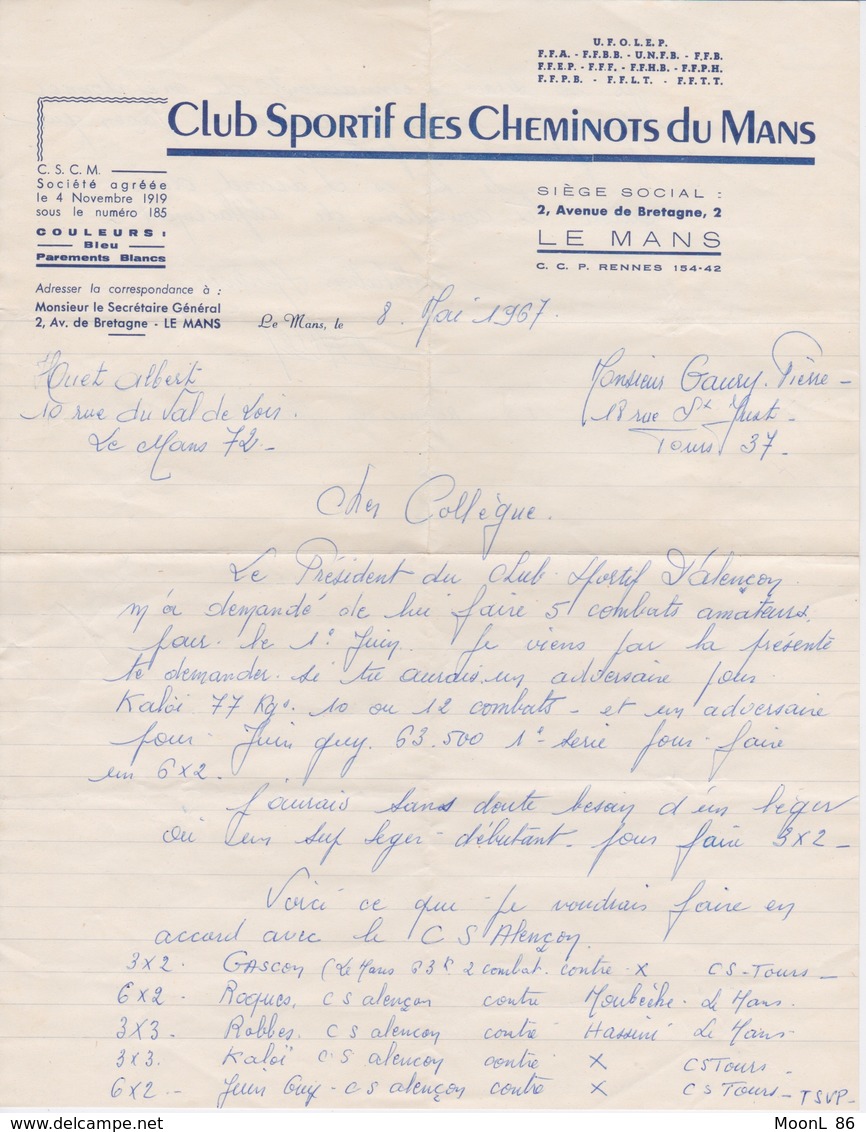 U.F.O.L.E.P.
F.F.A. - F.F.B.B. - U.N.F.B. - F.F.B.
F.F.E.P. - F.F.F. - F.F.H.B. - F.F.P.H.
F.F.P.B. - F.F.L.T. - F.F.T.T.
CLUB SPORTIF DES CHEMINOTS DU MANS
C. S. C. M.
Société agréée
le 4 Novembre 1919
sous le numéro 185
COULEURS :
Bleu
Parements Blancs
SIÈGE SOCIAL :
2, Avenue de Bretagne, 2
LE MANS
C. C. P. RENNES 154-42
Adresser la correspondance à :
Monsieur le Secrétaire Général
2, Av. de Bretagne - LE MANS
Le Mans, le 8 Mai 1967.
Huet Albert
10 rue du Val de Loir.
Le Mans 72 -
Monsieur Gaury. Pierre -
18 rue St Just -
Tours 37 -
Cher Collègue.
Le Président du Club Sportif D'alençon
m'a demandé de lui faire 5 combats amateurs.
pour le 1° Juin. Je viens par la présente
te demander si tu aurais un adversaire pour
Kaloï 77 Kgs. 10 ou 12 combats - et un adversaire
pour Juin guy. 63.500 1° serie pour faire
un 6x2.
J'aurais sans doute besoin d'un léger
ou un sup leger - débutant pour faire 3x2 -
Voici ce que je voudrais faire en
accord avec le C S Alençon.
3x2. Gascoy (Le Mans 63k. 2 combat. contre x CS-Tours -
6x2 - Roques. C S alençon contre Moubèche. Le Mans.
3x3 - Robbes. C S alençon contre Hassini Le Mans
3x3. Kaloï C S alençon contre x CS Tours -
6x2 - Juin Guy - C S alençon contre x CS Tours - TSVP -
MoonL 86